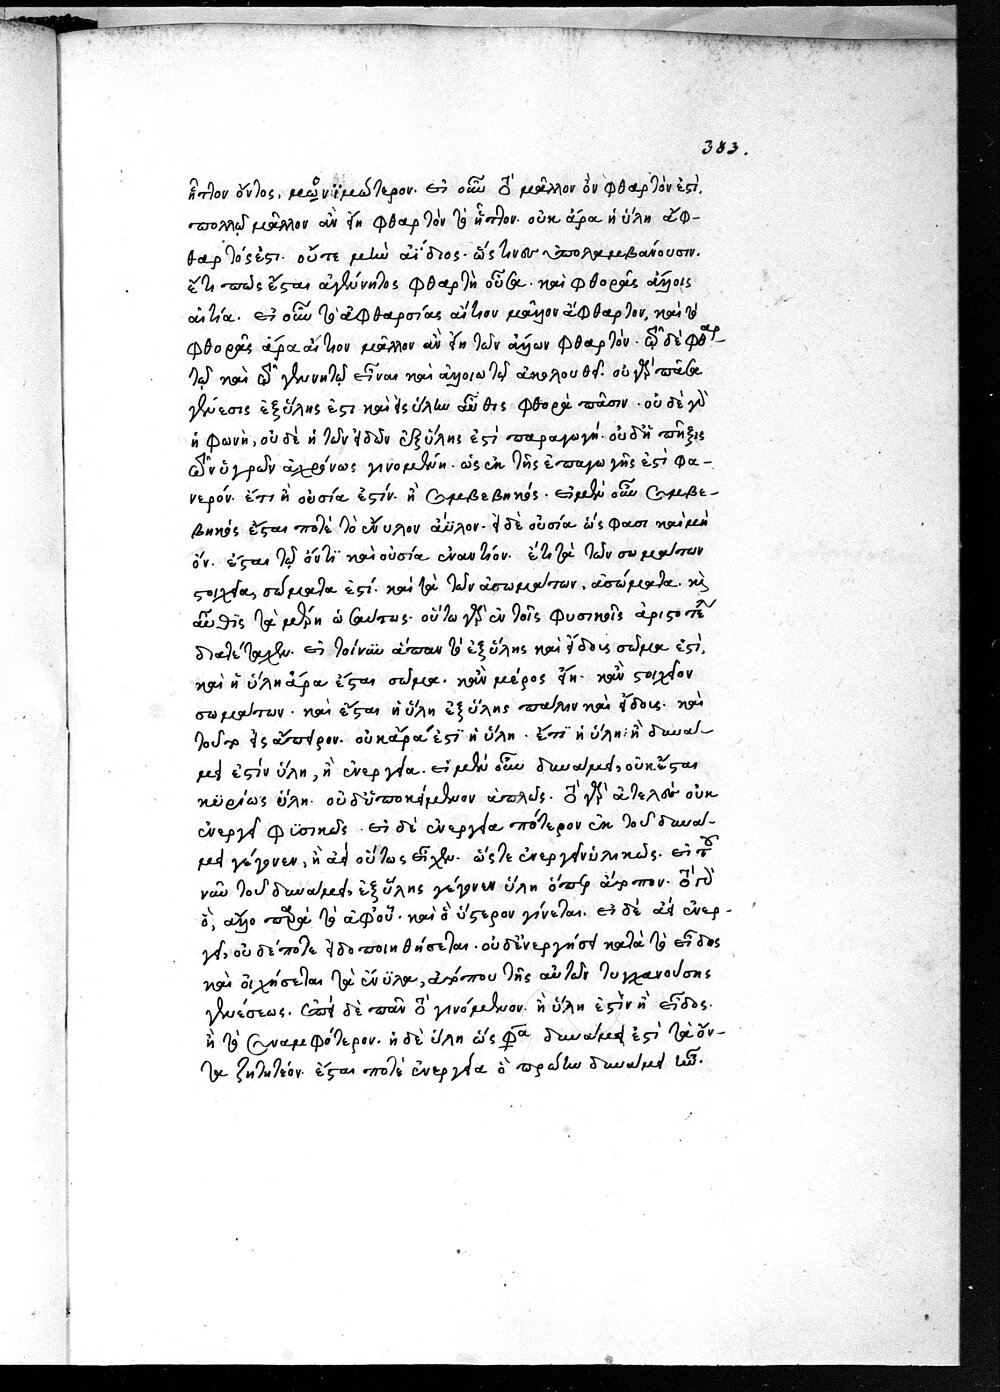 383.
ἧττον ὄντος, μονιμώτερον. εἰ οὖν τὸ μᾶλλον ὂν φθαρτόν ἐστι,
πολλῷ μᾶλλον ἂν εἴη φθαρτὸν τὸ ἧττον. οὐκ ἄρα ἡ ὕλη ἄφ-
θαρτός ἐστι. οὔτε μὴν ἀΐδιος. ὥς τινες ὑπολαμβάνουσιν.
ἔτι πῶς ἔσται ἀγέννητος φθαρτὴ οὖσα. καὶ φθορᾶς ἄλλοις
αἰτία. εἰ οὖν τὸ ἀφθαρσίας αἴτιον μᾶλλον ἄφθαρτον, καὶ τὸ
φθορᾶς ἄρα αἴτιον μᾶλλον ἂν εἴη τῶν ἄλλων φθαρτόν. τῷ δὲ φθαρ-
τῷ καὶ τὸ γεννητῷ εἶναι καὶ ἀλλοιωτῷ ἀκολουθεῖ. οὐ γὰρ πᾶσα
γένεσις ἐξ ὕλης ἐστὶ καὶ εἰς ὕλην αὖθις φθορὰ πᾶσιν. οὐδὲ γὰρ
ἡ φωνὴ, οὐδὲ ἡ τῶν εἰδῶν ἐξ ὕλης ἐστὶ παραγωγή. οὐδ' ἡ πῆξις
τῶν ὑγρῶν ἀχρόνως γινομένη. ὡς ἐκ τῆς ἐπαγωγῆς ἐστὶ φα-
νερόν. ἔτι ἢ οὐσία ἐστίν. ἢ συμβεβηκός. εἰ μὲν οὖν συμβε-
βηκός ἔσται ποτὲ τὸ ἔνυλον ἄϋλον. εἰ δὲ οὐσία ὥς φασι καὶ μὴ
ὄν. ἔσται τῷ ὄντι καὶ οὐσία ἐναντίον. ἔτι τὰ τῶν σωμάτων
στοιχεῖα, σώματα ἐστί. καὶ τὰ τῶν ἀσωμάτων, ἀσώματα. καὶ
αὖθις τὰ μέρη ὡσαύτως. οὕτω γὰρ ἐν τοῖς φυσικοῖς ἀριστοτέλης
διατέτακται. εἰ τοίνυν ἅπαν τὸ ἐξ ὕλης καὶ εἴδους σῶμα ἐστὶ,
καὶ ἡ ὕλη ἄρα ἔσται σῶμα. κἂν μέρος εἴη. κἂν στοιχεῖον
σωμάτων. καὶ ἔσται ἡ ὕλη ἐξ ὕλης πάλιν καὶ εἴδους. καὶ
τοῦτο εἰς ἄπειρον. οὐκ ἄρα ἐστὶ ἡ ὕλη. ἔτι ἡ ὕλη ἢ δυνά-
μει ἐστὶν ὕλη, ἢ ἐνεργείᾳ. εἰ μὲν οὖν δυνάμει, οὐκ ἔσται
κυρίως ὕλη. οὐδ' ὑποκείμενον ἁπλῶς. τὸ γὰρ ἀτελὲς οὐκ
ἐνεργεῖ φυσικῶς. εἰ δὲ ἐνεργείᾳ πότερον ἐκ τοῦ δυνά-
μει γέγονεν, ἢ ἀεὶ οὕτως εἶχεν. ὥστε ἐνεργεῖν ὑλικῶς. εἰ μὲν
οὖν τοῦ δυνάμει, ἐξ ὕλης γέγονεν ὕλη ὅπερ ἄτοπον. τὸ γὰρ
ὃ, ἄλλο παρὰ τὸ ἀφ' οὗ. καὶ ὃ ὕστερον γίνεται. εἰ δὲ ἀεὶ ἐνερ-
γεῖ, οὐδέποτε εἰδοποιηθήσεται. οὐδ' ἐνεργήσει κατὰ τὸ εἶδος
καὶ οἰχήσεται τὰ ἔνυλα, ἀτόπου τῆς αὐτῶν τυγχανούσης
γενέσεως. ἐπεὶ δὲ πᾶν τὸ γινόμενον. ἢ ὕλη ἐστὶν ἢ εἶδος.
ἢ τὸ συναμφότερον. ἡ δὲ ὕλη ὥς φασι δυνάμει ἐστὶ τὰ ὄν-
τα ζητητέον. ἔσται ποτὲ ἐνεργείᾳ ὃ πρώτην δυνάμει ἦν.